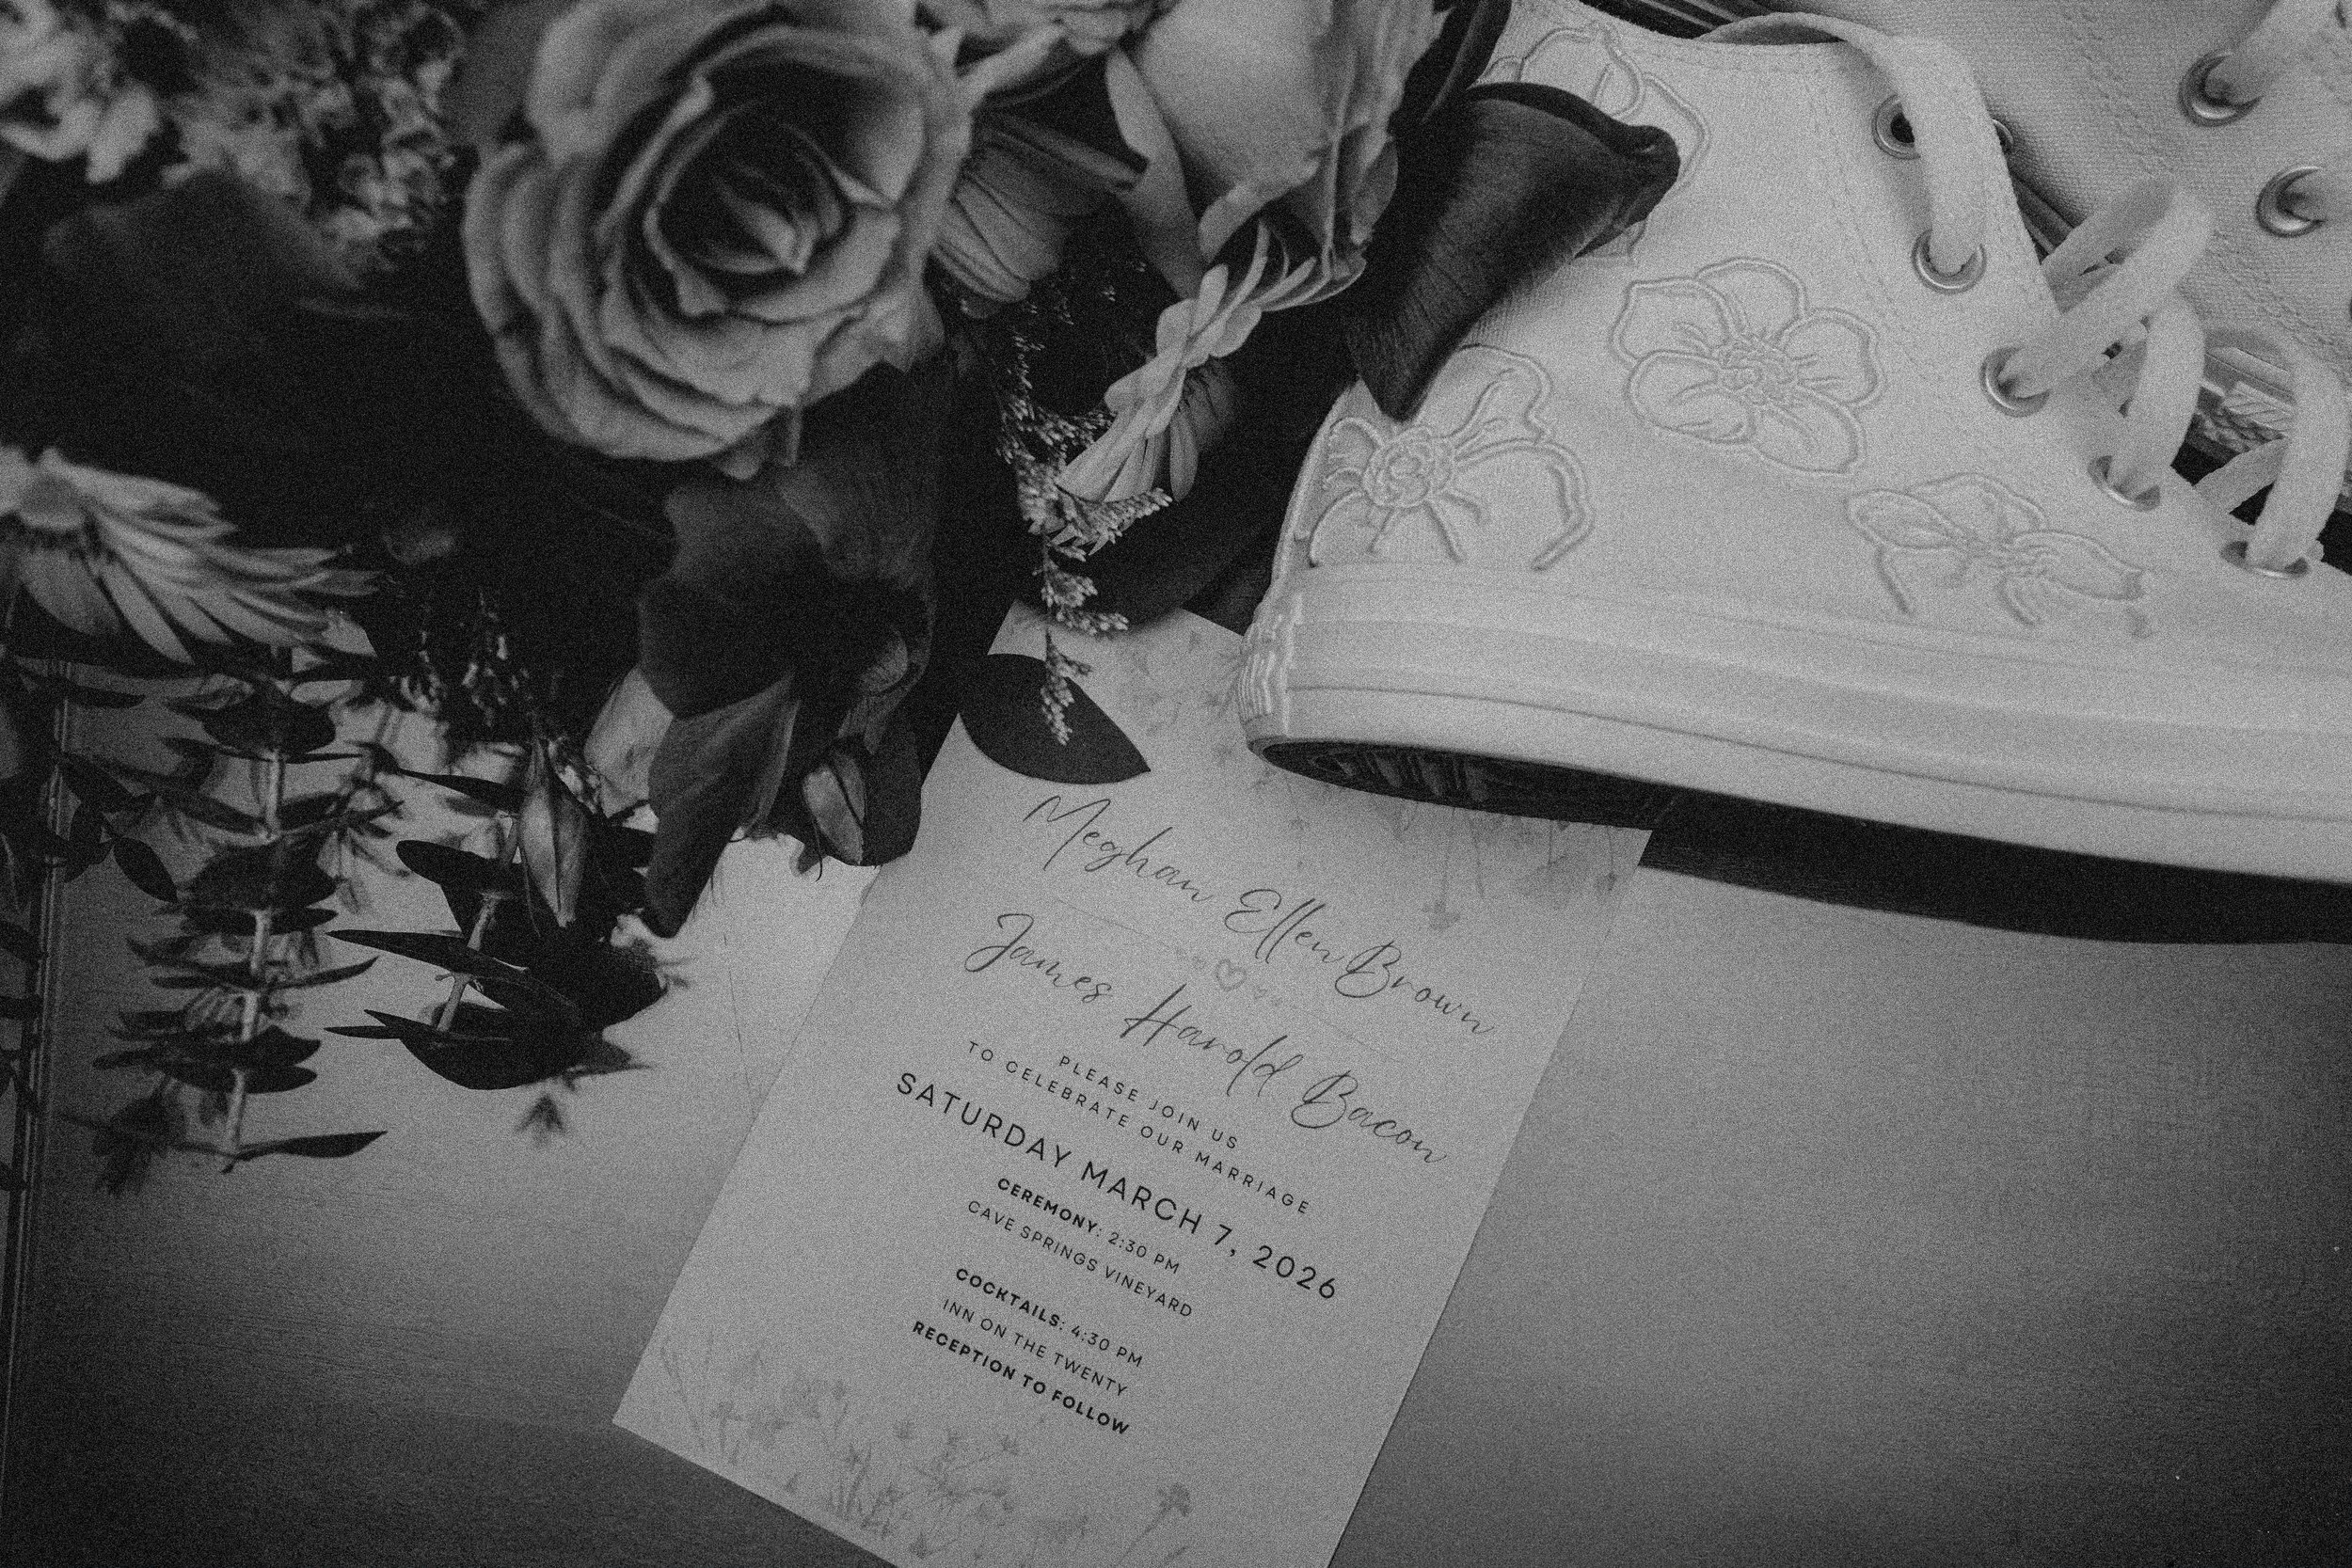 Meghan Ellen Brown
James Harold Bacon
PLEASE JOIN US
TO CELEBRATE OUR MARRIAGE
SATURDAY MARCH 7, 2026
CEREMONY: 2:30 PM
CAVE SPRINGS VINEYARD
COCKTAILS: 4:30 PM
INN ON THE TWENTY
RECEPTION TO FOLLOW